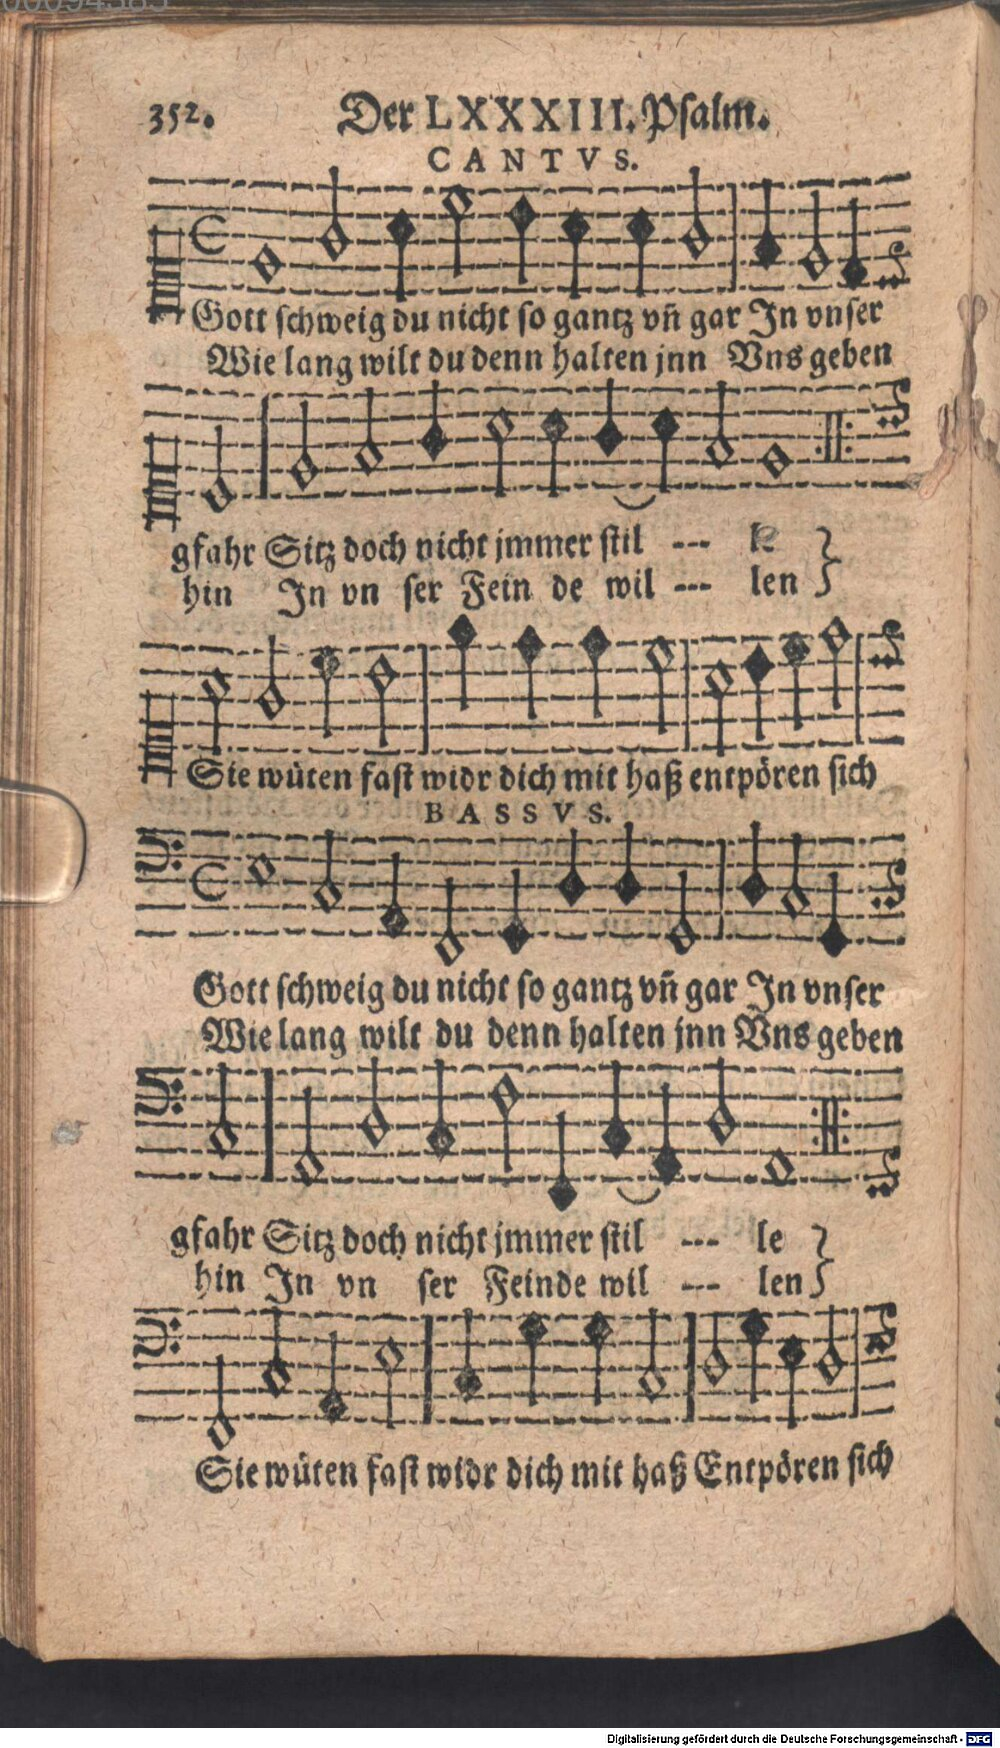 352. Der LXXXIII. Psalm.
CANTVS.
Gott schweig du nicht so gantz vn̄ gar In vnser
Wie lang wilt du denn halten jnn Vns geben
gfahr Sitz doch nicht jmmer stil --- le
hin In vn ser Fein de wil --- len
Sie wüten fast widr dich mit haß entpören sich
BASSVS.
Gott schweig du nicht so gantz vn̄ gar In vnser
Wie lang wilt du denn halten jnn Vns geben
gfahr Sitz doch nicht jmmer stil --- le
hin In vn ser Feinde wil --- len
Sie wüten fast widr dich mit haß Entpören sich
Digitalisierung gefördert durch die Deutsche Forschungsgemeinschaft - DFG